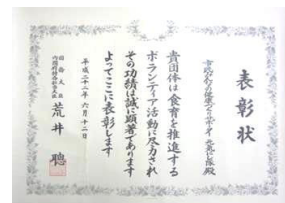 表彰状
貴団体は食育を推進する
ボランティア活動に尽力され
その功績は誠に顕著であります
よってここに表彰します
平成二十二年六月十二日
国務大臣
内閣府特命担当大臣
荒井 聰